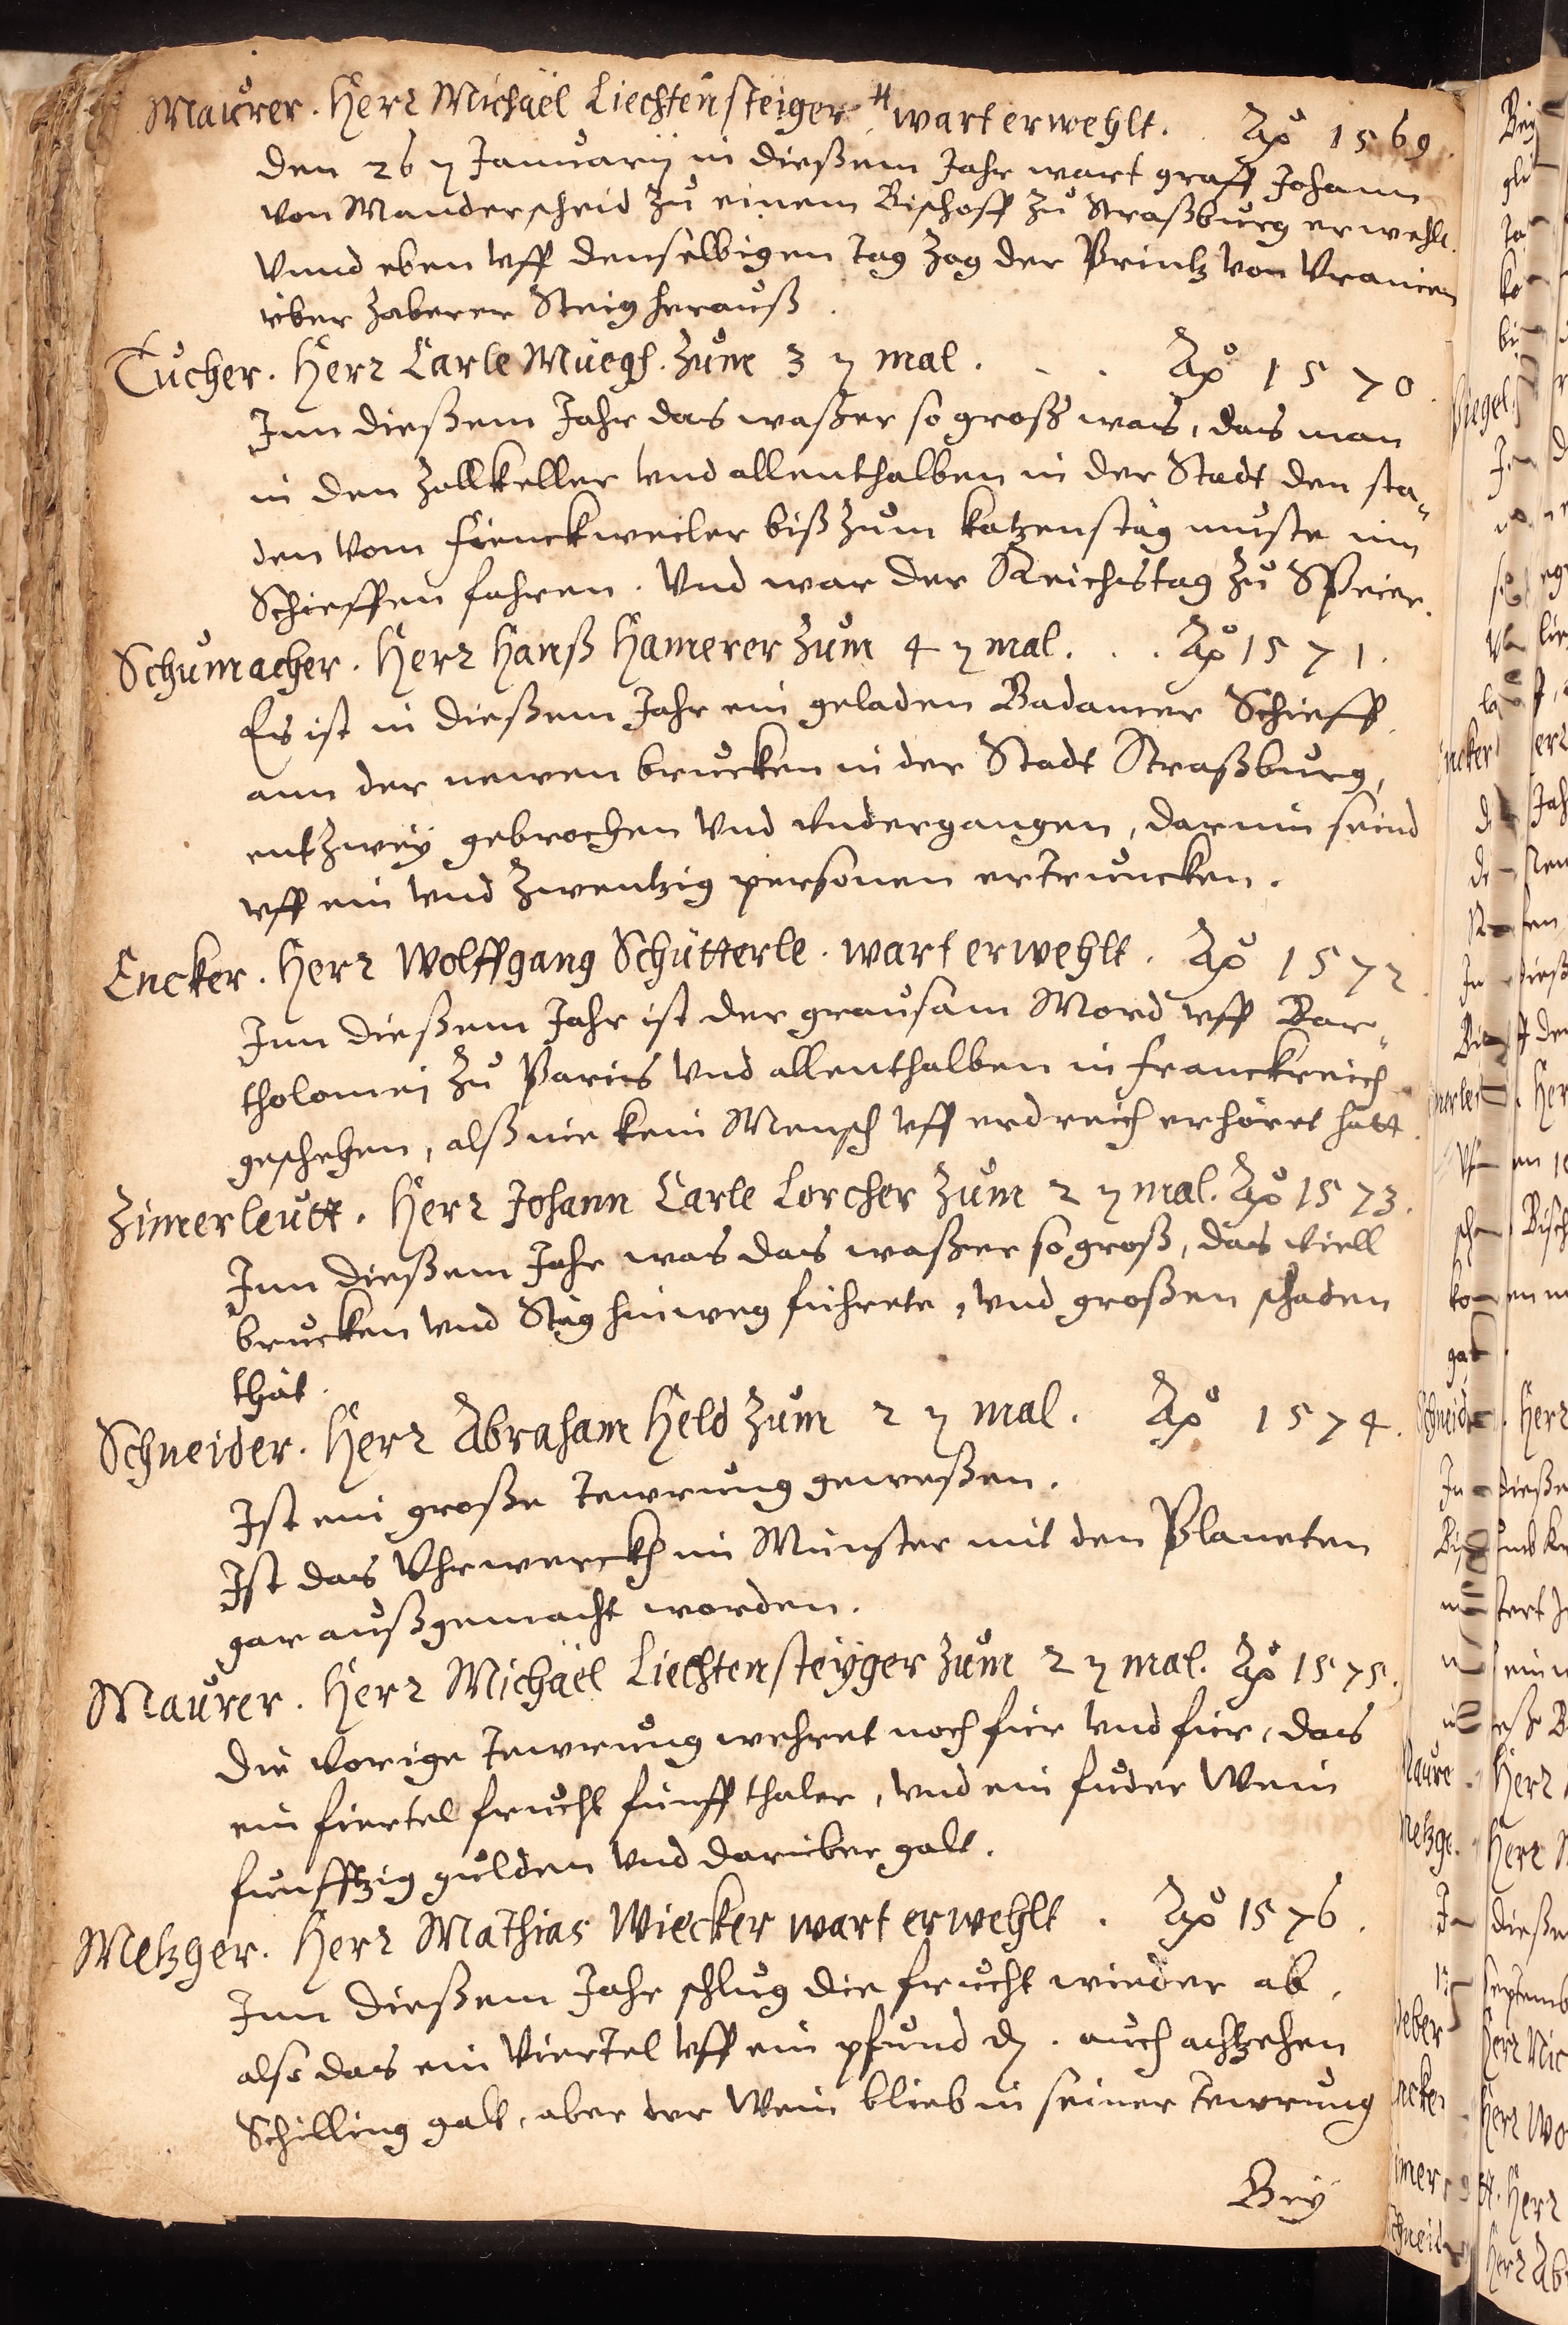 Maurer. Herr Michaël Liechtensteiger # wart erwehlt. Aō 1569.
den 26 n Januarÿ in dießem Jahr wart graff Johann
von Manderscheid zu einem Bischoff zu Straßburg erwehlt.
Vnnd eben vff denselbigen tag zog der Printz von Vranien
über Zaberer Steig herauß.
Tucher. Herr Carle Müegh. Zum 3 n mal. . . Aō 1570.
Inn dießem Jahr das waßer so groß was, das man
in den Zollkeller vnd allenthalben in der Stadt den sta=
den vom Finckweiler biß zum katzenstäg muste mit
Schieffen fahren. Vnd war der Reichstag zu Speier.
Schumacher. Herr Hanß Hamerer Zum 4 n mal. . . Aō 1571.
Es ist in dießem Jahr ein geladen Badamer Schieff
ann der newen brucken in der Stadt Straßburg,
entzweÿ gebrochen vnd vndergangen, darinn seind
vff ein vnd zwentzig personen ertruncken.
Encker. Herr Wolffgang Schütterle. wart erwehlt. Aō 1572.
Inn dießem Jahr ist der grausam Mord vff Bar=
tholomei zu Paris vnd allenthalben in Franckreich
geschehen, alß nie kein Mensch vff erdreich erhöret hatt.
Zimerleütt. Herr Johann Carle Lorcher Zum 2 n mal. Aō 1573.
Inn dießem Jahr was das waßer so groß, das viell
brucken vnd Stäg hinweg führete, vnd großen schaden
thät.
Schneider. Herr Abraham Held Zum 2 n mal. Aō 1574.
Ist ein große tewrung geweßen.
Ist das Vhrwerckh im Münster mit den Planeten
gar außgemacht worden.
Maurer. Herr Michaël Liechtensteÿger Zum 2 n mal. Aō 1575.
Die vorige tewrung wehret noch fier vnd fier, das
ein fiertel frucht fünff thaler, vnd ein fuder Wein
funfftzig gulden vnd darüber galt.
Metzger. Herr Mathias Wiecker wart erwehlt. Aō 1576.
Inn dießem Jahr schlug die frucht wieder ab,
also das ein Viertel vff ein pfund d. auch achtzehen
Schilling galt, aber der Wein blieb in seiner tewrung
Beÿ